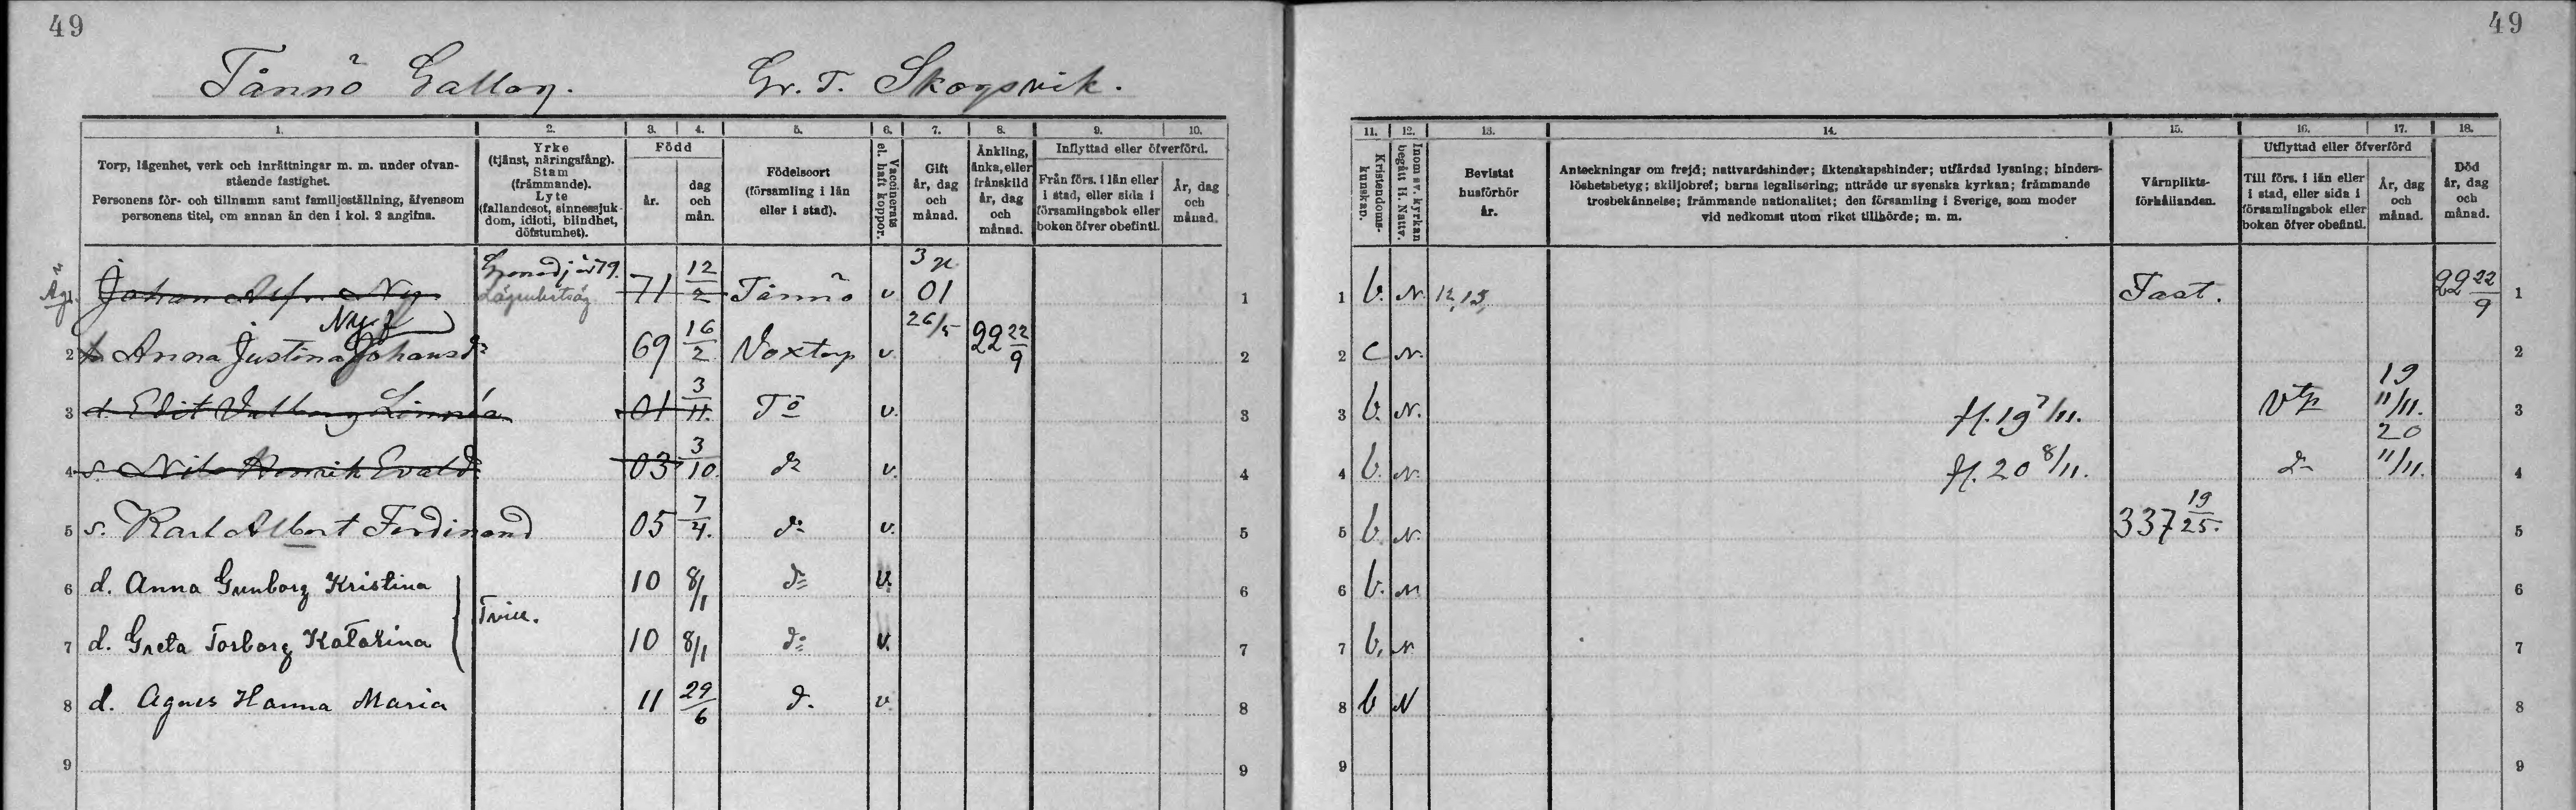 49
49
Tånnö Gallog. Gr. T. Skogsvik.
1. 2. 3. 4. 5. 6. 7. 8. 9. 10.
Torp, lägenhet, verk och inrättningar m. m. under ofvan-
stående fastighet.
Personens för- och tillnamn samt familjeställning, äfvensom
personens titel, om annan än den i kol. 2 angifna.
Yrke
(tjänst, näringsfång).
Stam
(främmande).
Lyte
(fallandesot, sinnessjuk-
dom, idioti, blindhet,
döfstumhet).
Född
år.
dag
och
mån.
Födelseort
(församling i län
eller i stad).
Vaccinerats
el. haft koppor.
Gift
år, dag
och
månad.
Änkling,
änka, eller
frånskild
år, dag
och
månad.
Inflyttad eller öfverförd.
Från förs. i län eller
i stad, eller sida i
församlingsbok eller
boken öfver obefintl.
År, dag
och
månad.
11. 12. 13. 14. 15. 16. 17. 18.
Kristendoms-
kunskap.
Inom sv. kyrkan
begått H. Nattv.
Bevistat
husförhör
år.
Anteckningar om frejd; nattvardshinder; äktenskapshinder; utfärdad lysning; hinders-
löshetsbetyg; skiljobref; barns legalisering; utträde ur svenska kyrkan; främmande
trosbekännelse; främmande nationalitet; den församling i Sverige, som moder
vid nedkomst utom riket tillhörde; m. m.
Värnplikts-
förhållanden.
Utflyttad eller öfverförd
Till förs. i län eller
i stad, eller sida i
församlingsbok eller
boken öfver obefintl.
År, dag
och
månad.
Död
år, dag
och
månad.
Äg. Johan Alfr. Ny 71 12/2 Tånnö v. 01 1 1 b. N. 12, 13, Fast. 22 22/9 1
2 Anna Justina Johansdr 69 16/2 Voxtorp v. 26/5 22 22/9 2 2 C N. 2
3 d. Edit Valborg Linnéa 01 3/11. Tö v. 3 3 b. N. fl. 19 7/11. Vtp 19 11/11. 3
4 s. Nils Henrik Evald 03 3/10. do v. 4 4 b. N. fl. 20 8/11. do 20 11/11. 4
5 s. Karl Albert Ferdinand 05 7/4. do v. 5 5 b. N. 337 19/25. 5
6 d. Anna Gunborg Kristina 10 8/1 do v. 6 6 b. N 6
Tvill.
7 d. Greta Torborg Katarina 10 8/1 do v. 7 7 b. N 7
8 d. Agnes Hanna Maria 11 29/6 d. v 8 8 b N 8
9 9 9 9